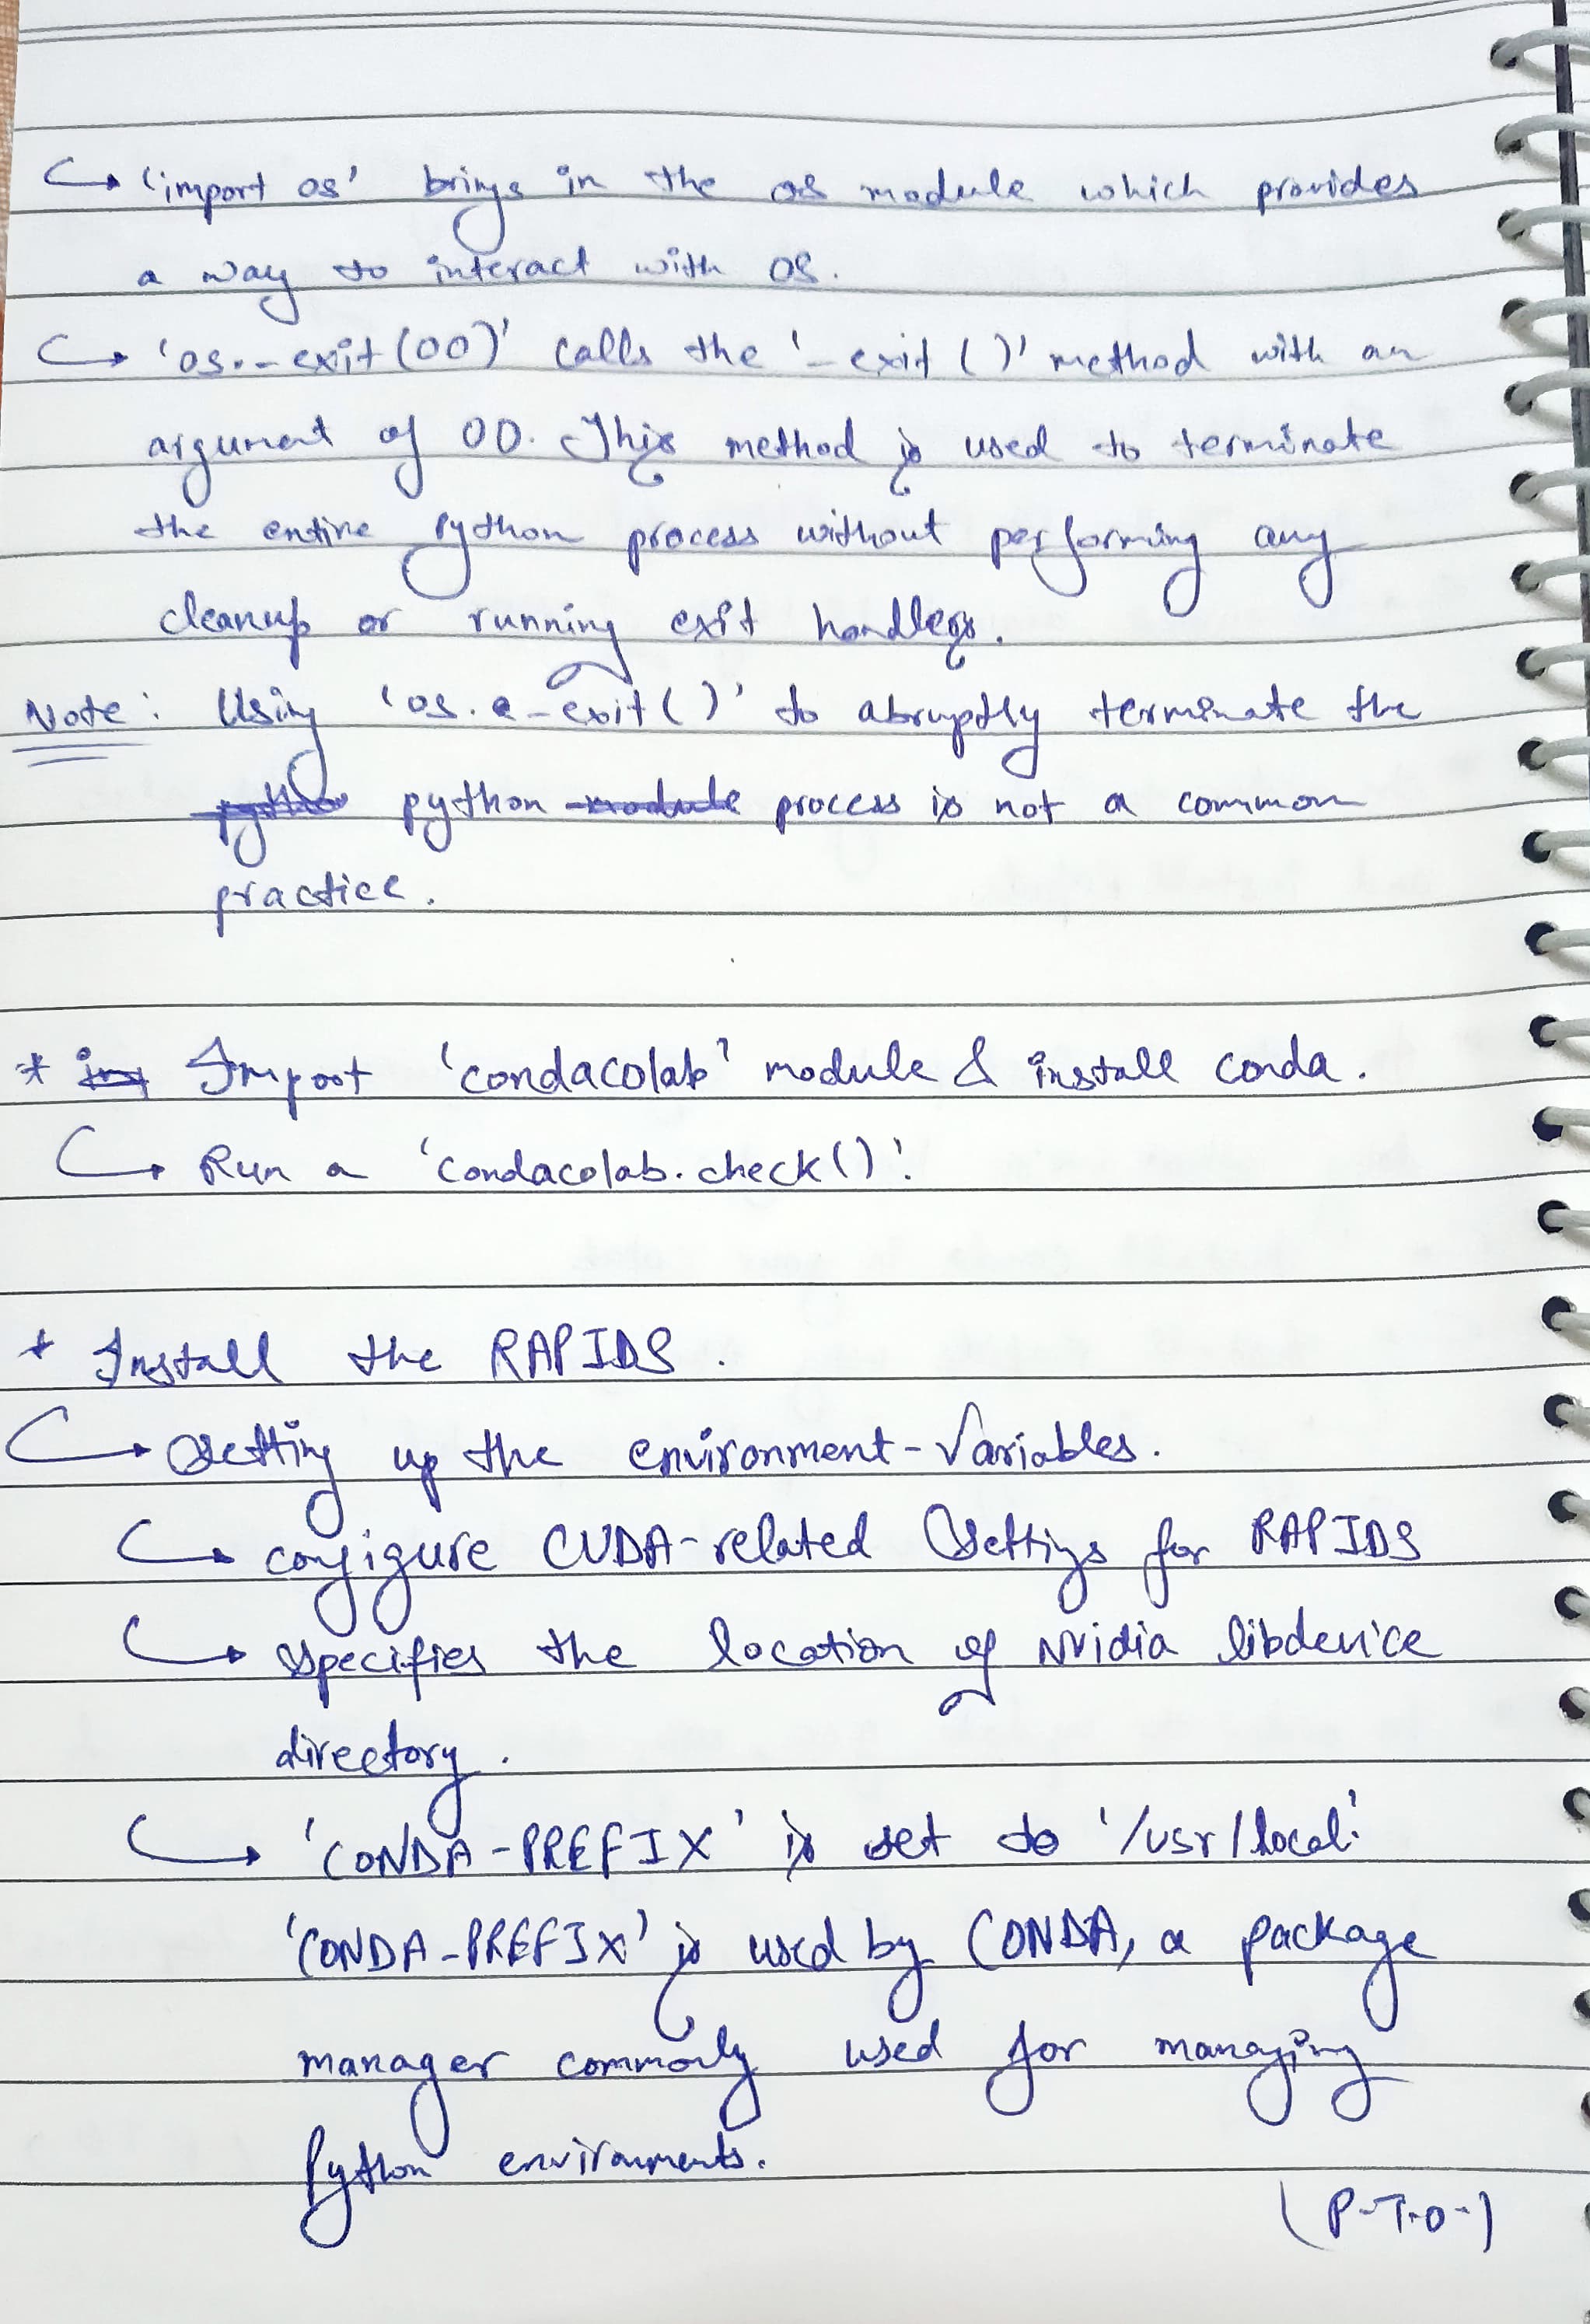 ↳ 'import os' brings in the os module which provides
a way to interact with OS.
↳ 'os._exit(00)' calls the '_exit()' method with an
argument of 00. This method is used to terminate
the entire Python process without performing any
cleanup or running exit handlers.
Note: Using 'os._exit()' to abruptly terminate the
python process is not a common
practice.
* Import 'condacolab' module & install conda.
↳ Run a 'condacolab.check()'.
* Install the RAPIDS.
↳ Setting up the environment-Variables.
↳ configure CUDA-related Settings for RAPIDS
↳ specifies the location of Nvidia libdevice
directory.
↳ 'CONDA-PREFIX' is set to '/usr/local'
'CONDA-PREFIX' is used by CONDA, a package
manager commonly used for managing
Python environments.
(P.T.O.)